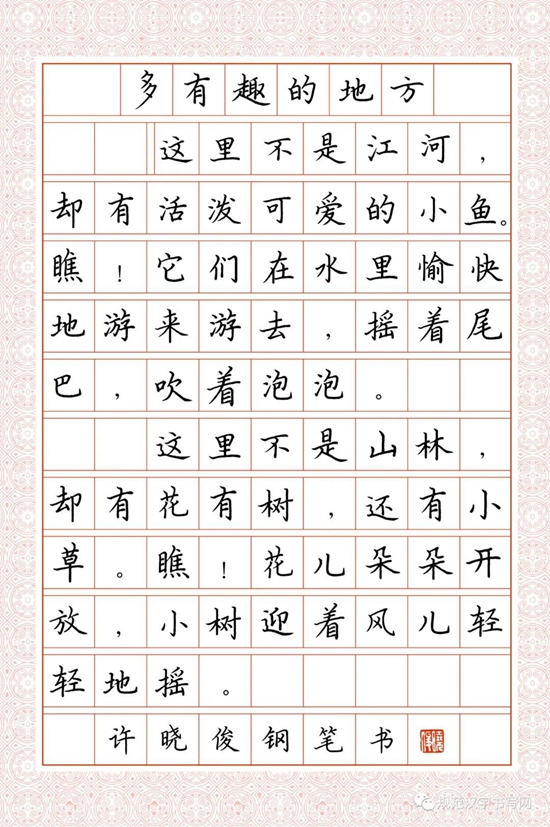 多有趣的地方
这里不是江河，
却有活泼可爱的小鱼。
瞧！它们在水里愉快
地游来游去，摇着尾
巴，吹着泡泡。
这里不是山林，
却有花有树，还有小
草。瞧！花儿朵朵开
放，小树迎着风儿轻
轻地摇。
许晓俊钢笔书
规范汉字书写网